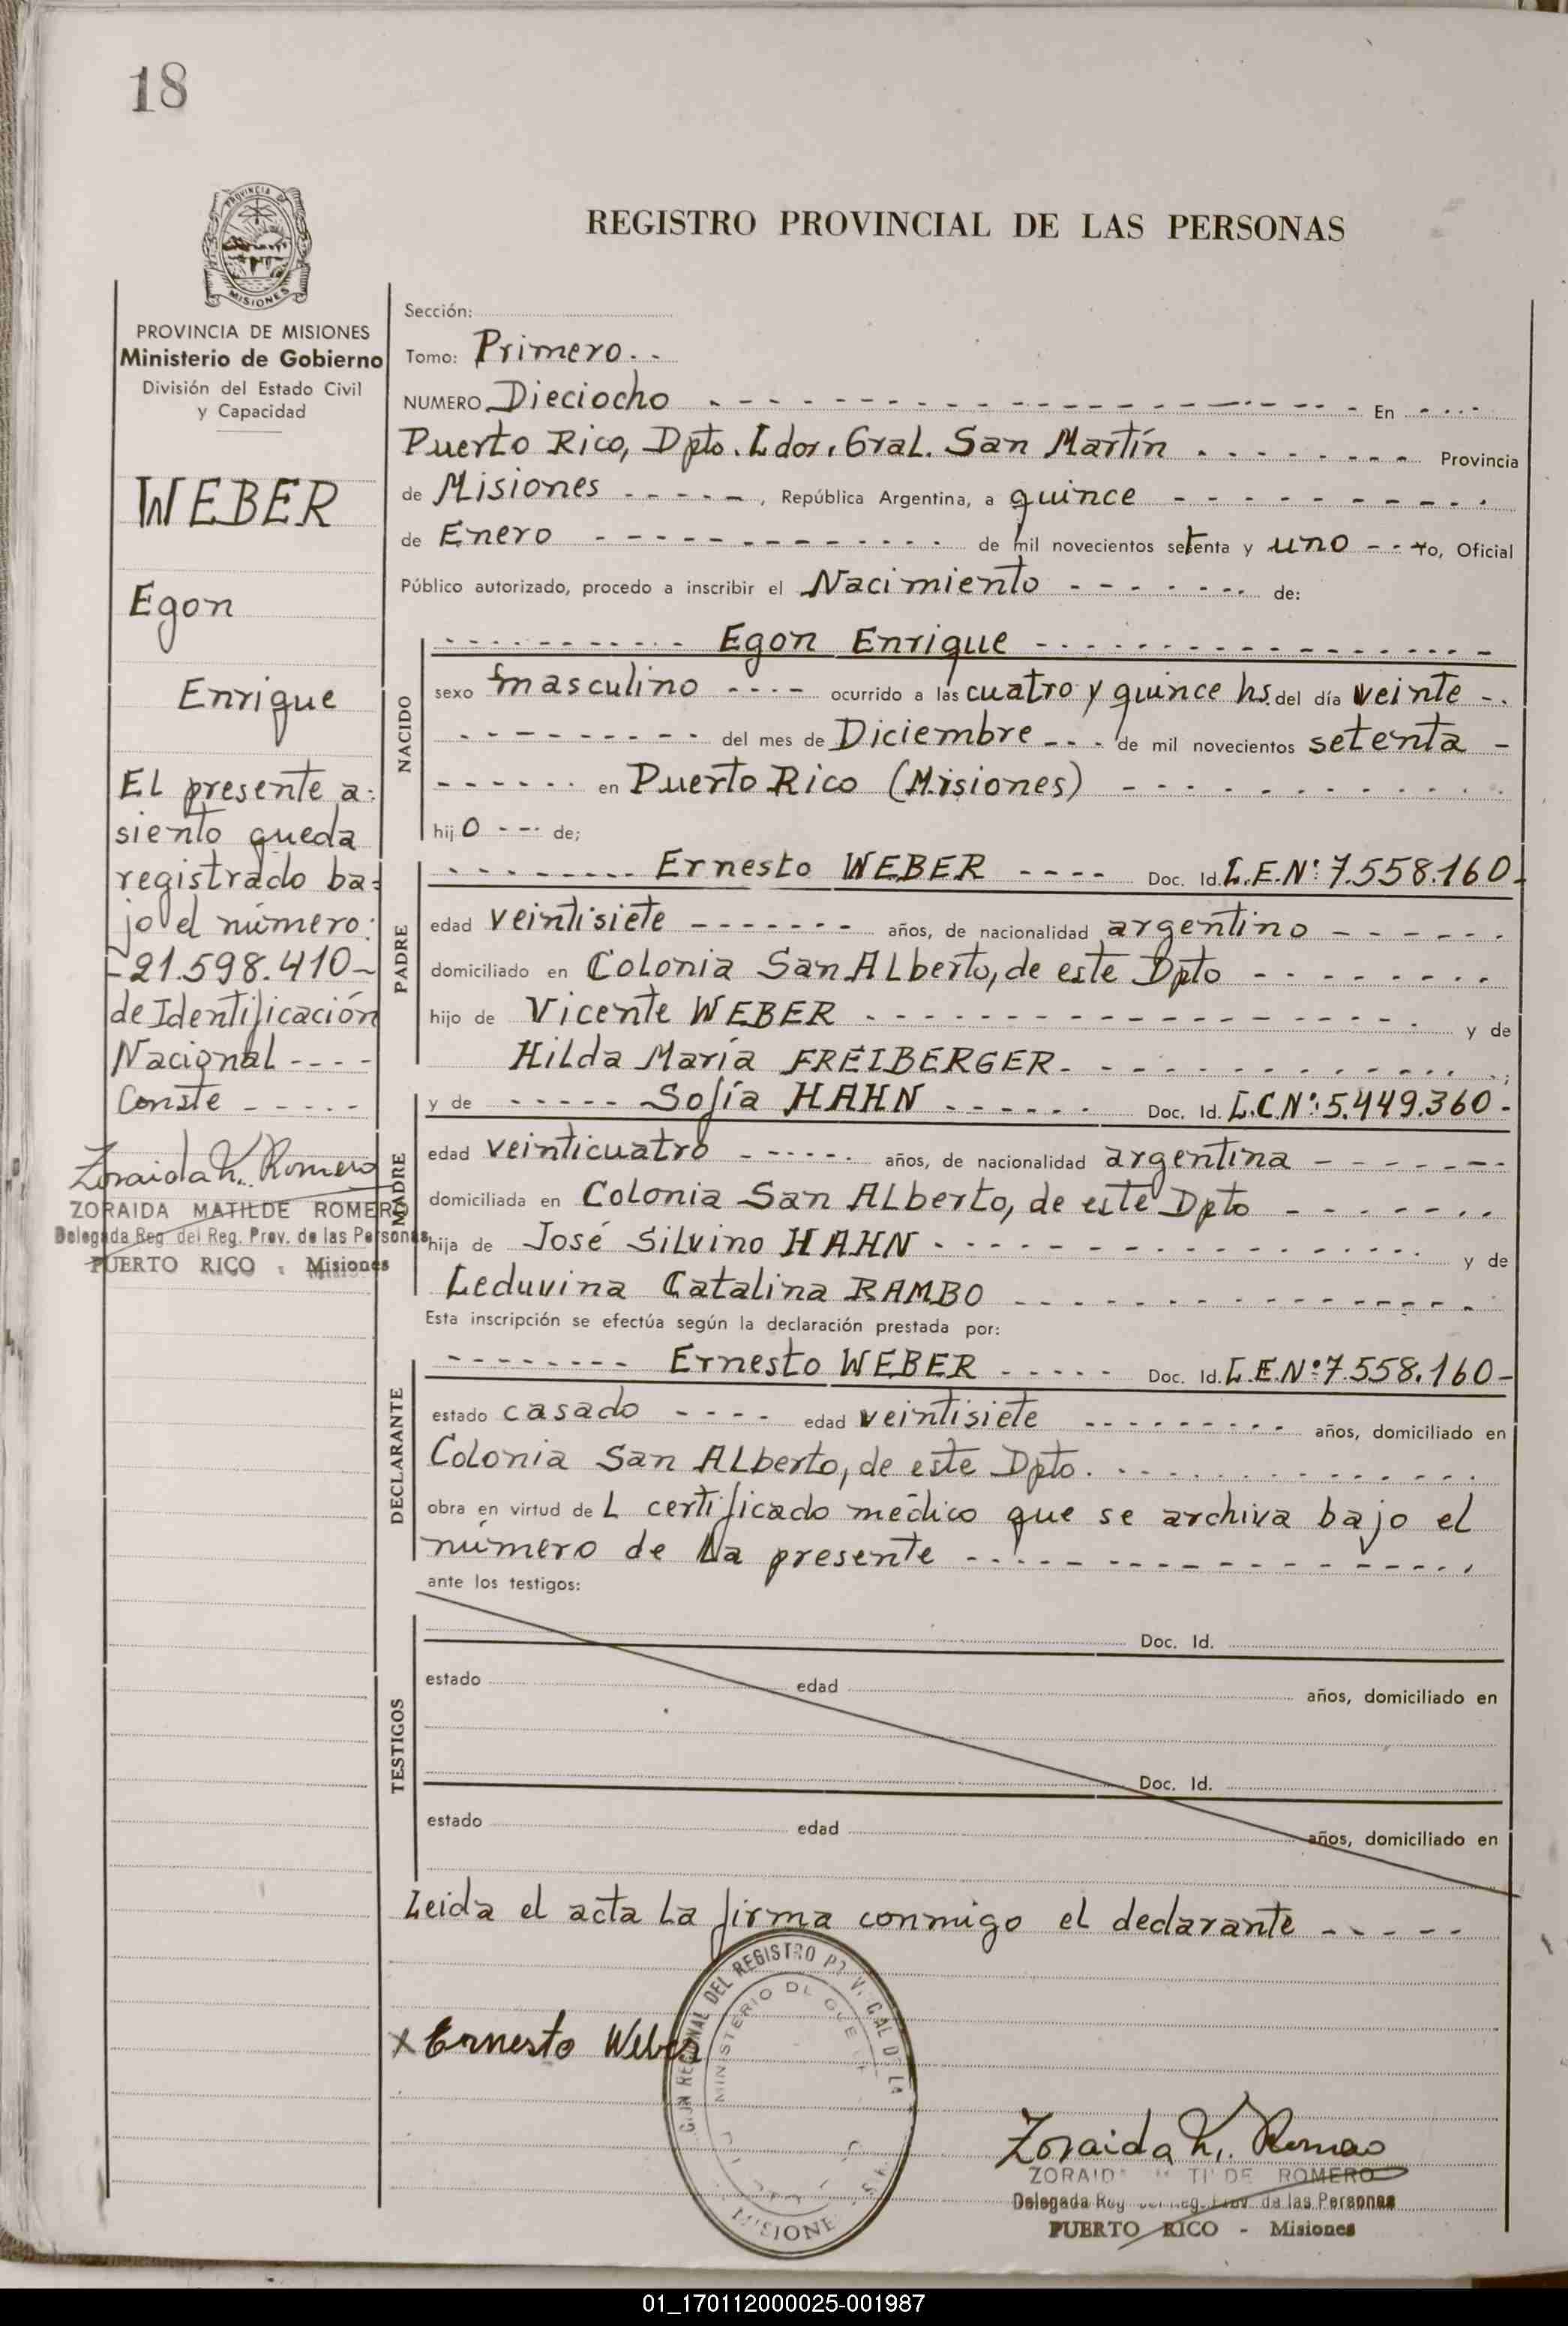 18
PROVINCIA
MISIONES
REGISTRO PROVINCIAL DE LAS PERSONAS
PROVINCIA DE MISIONES
Ministerio de Gobierno
División del Estado Civil
y Capacidad
WEBER
Egon
Enrique
El presente a-
siento queda
registrado ba-
jo el número:
-21.598.410-
de Identificación
Nacional ----
Conste -----
Zoraida M. Romero
ZORAIDA MATILDE ROMERO
Delegada Reg. del Reg. Prov. de las Personas
PUERTO RICO - Misiones
Sección:
Tomo: Primero. -
NUMERO Dieciocho - - - En - - -
Puerto Rico, Dpto. Ldor. Gral. San Martín - - - Provincia
de Misiones - - - , República Argentina, a quince - - -
de Enero - - - de mil novecientos setenta y uno - - Yo, Oficial
Público autorizado, procedo a inscribir el Nacimiento - - - de:
NACIDO
- - - Egon Enrique - - -
sexo masculino - - - ocurrido a las cuatro y quince hs. del día veinte -
- - - del mes de Diciembre - - - de mil novecientos setenta -
- - - en Puerto Rico (Misiones) - - -
hijo - - - de;
PADRE
- - - Ernesto WEBER - - - Doc. Id. L.E.Nº: 7.558.160-
edad veintisiete - - - años, de nacionalidad argentino - - -
domiciliado en Colonia San Alberto, de este Dpto - - -
hijo de Vicente WEBER - - - y de
Hilda María FREIBERGER - - - ;
MADRE
y de - - - Sofía HAHN - - - Doc. Id. L.C.Nº: 5.449.360-
edad veinticuatro - - - años, de nacionalidad argentina - - -
domiciliada en Colonia San Alberto, de este Dpto - - -
hija de José Silvino HAHN - - - y de
Leduvina Catalina RAMBO - - -
Esta inscripción se efectúa según la declaración prestada por:
DECLARANTE
- - - Ernesto WEBER - - - Doc. Id. L.E.Nº: 7.558.160-
estado casado - - - edad veintisiete - - - años, domiciliado en
Colonia San Alberto, de este Dpto. - - -
obra en virtud de L certificado médico que se archiva bajo el
número de La presente - - -
ante los testigos:
TESTIGOS
Doc. Id.
estado edad años, domiciliado en
Doc. Id.
estado edad años, domiciliado en
Leida el acta La firma conmigo el declarante - - -
x Ernesto Weber
DEL REGISTRO
MINISTERIO
Zoraida M. Romero
ROMERO
Delegada Reg. de las Personas
PUERTO RICO - Misiones
01_170112000025-001987